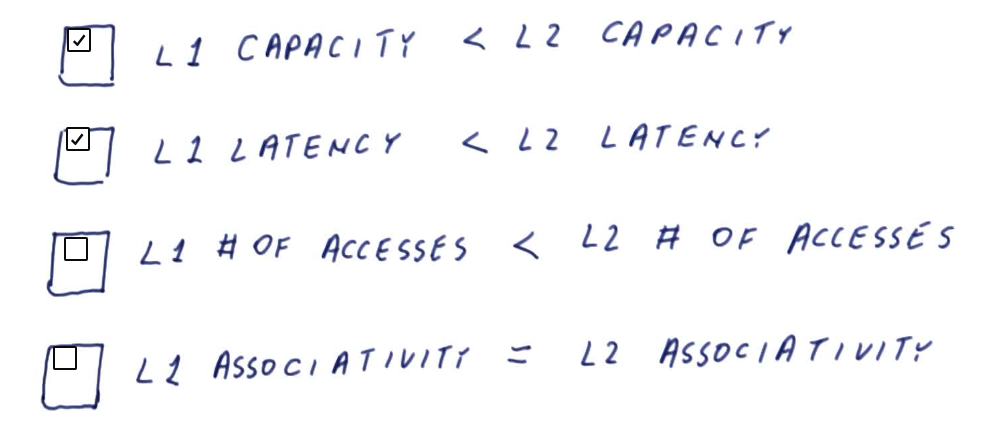 L1 CAPACITY < L2 CAPACITY
L1 LATENCY < L2 LATENCY
L1 # OF ACCESSES < L2 # OF ACCESSES
L1 ASSOCIATIVITY = L2 ASSOCIATIVITY